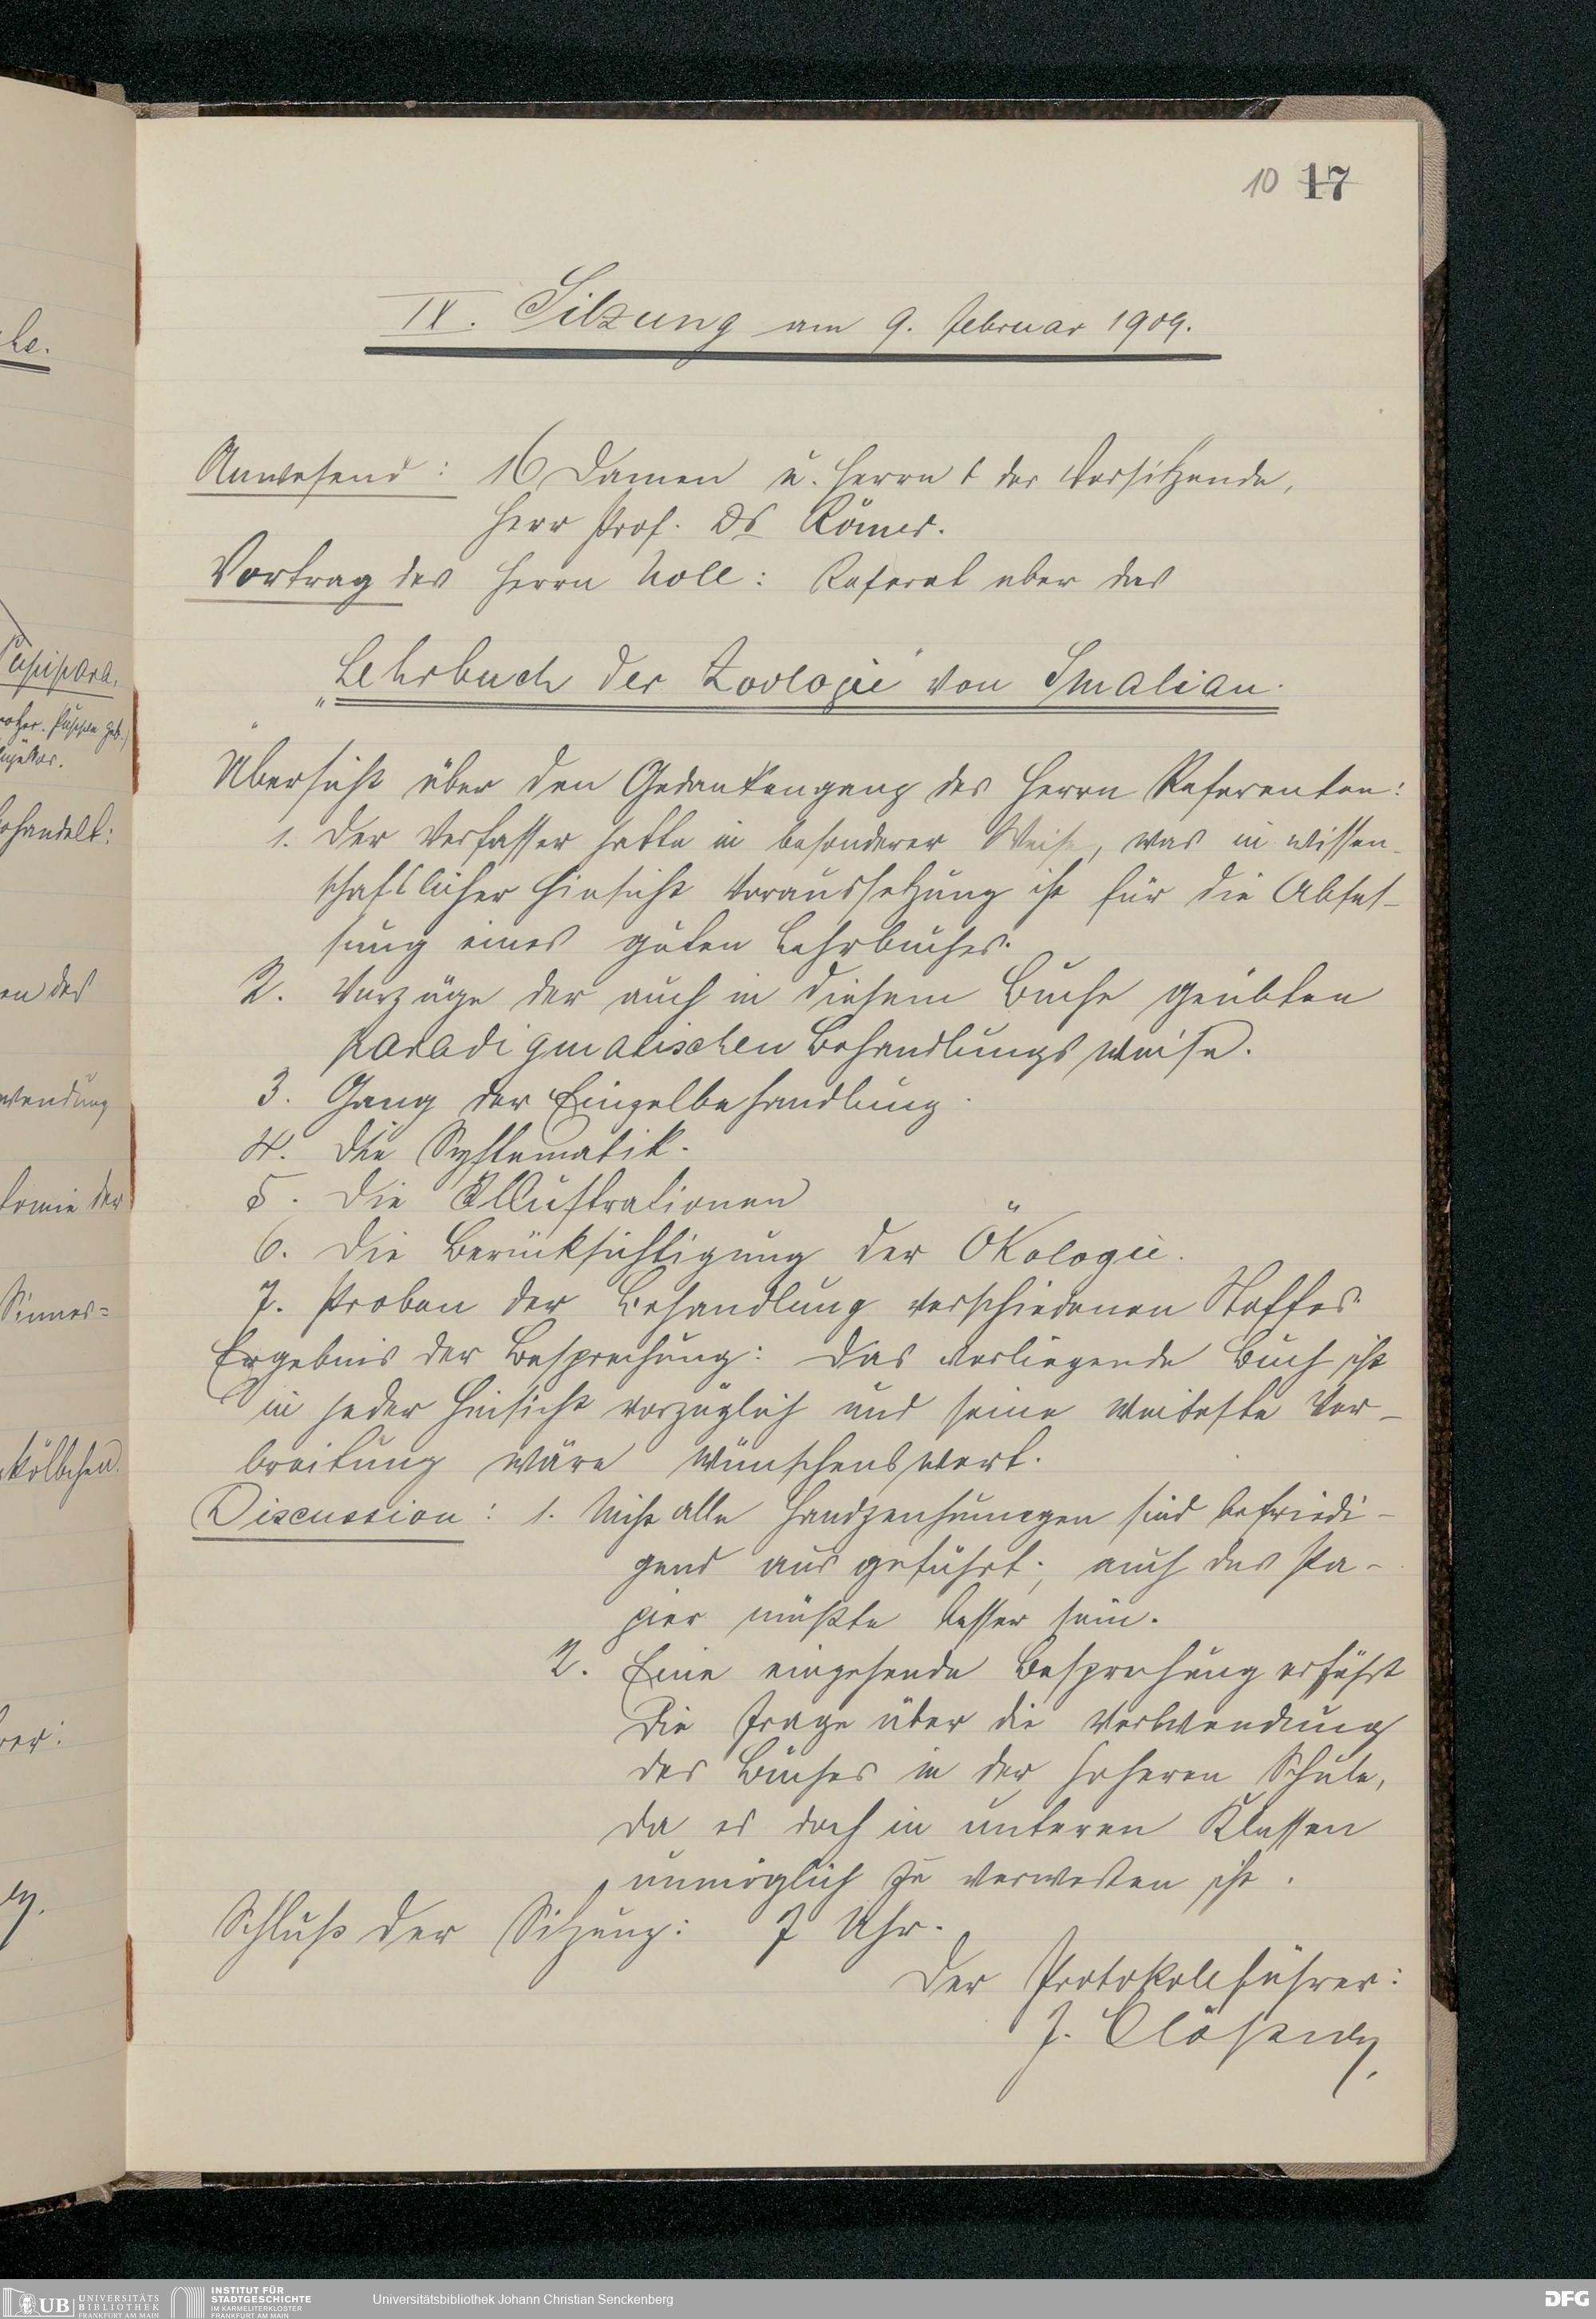 10 17
IV. Sitzung am 9. Februar 1909.
Anwesend: 16 Damen u. Herrn & der Vorsitzende,
Herr Prof. Dr Römer.
Vortrag des Herrn Noll: Referat uber das
„Lehrbuch der Zoologie" von Smalian.
Übersicht über den Gedankengang des Herrn Referenten:
1. Der Verfasser hatte in besonderer Weise, was in wissen-
schaftlicher Hinsicht Voraussetzung ist für die Abfas-
sung eines guten Lehrbuches.
2. Vorzüge der auch in diesem Buche geübten
paradigmatischen Behandlungsweise.
3. Gang der Einzelbehandlung.
4. Die Systematik.
5. Die Illustrationen
6. Die Berücksichtigung der Ökologie.
7. Proben der Behandlung verschiedenen Stoffes.
Ergebnis der Besprechung: Das vorliegende Buch ist
in jeder Hinsicht vorzüglich und seine weiteste Ver-
breitung wäre wünschenswert.
Discussion: 1. Nicht alle sind befriedi-
gend ausgeführt; auch das Pa-
pier müßte besser sein.
2. Eine eingehende Besprechung erfährt
die Frage über die Verwendung
des Buches in der hoheren Schule,
da es doch in unteren Klassen
unmöglich zu verwerten ist.
Schluß der Sitzung: 7 Uhr.
Der Protokollführer:
J.
he.
behandelt:
en des
wendung
tomie der
Sinnes=
kölbchen.
rer:
UB UNIVERSITÄTS
BIBLIOTHEK
FRANKFURT AM MAIN
INSTITUT FÜR
STADTGESCHICHTE
IM KARMELITERKLOSTER
FRANKFURT AM MAIN
Universitätsbibliothek Johann Christian Senckenberg
DFG